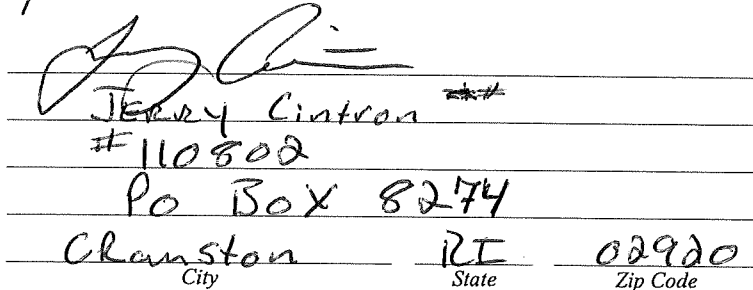 Jerry Cintron
#110802
PO BOX 8274
Cranston RI 02920
City State Zip Code